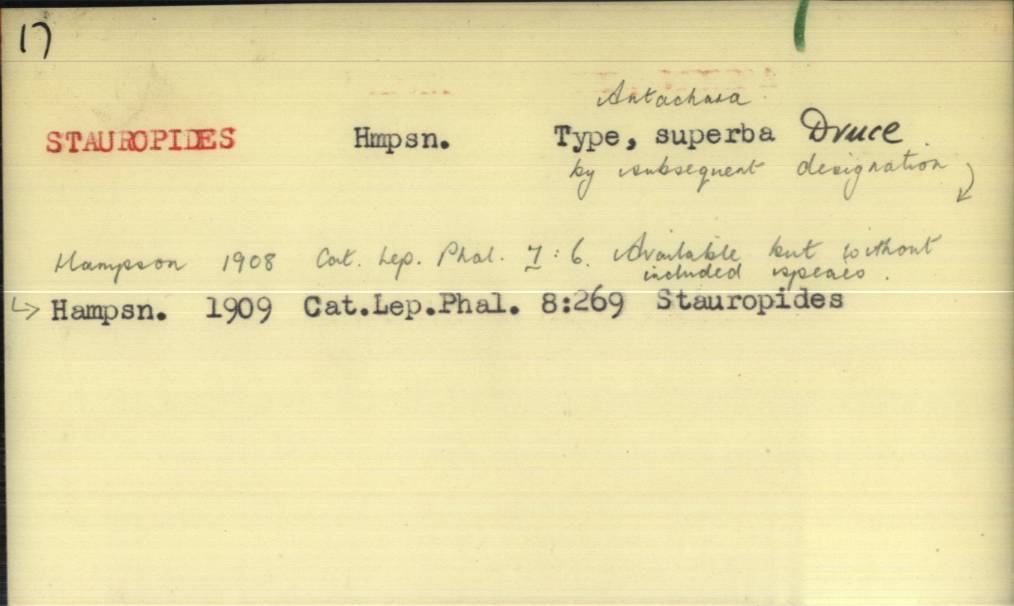 17
Antachara
STAUROPIDES Hmpsn. Type, superba Druce
by subsequent designation
Hampson 1908 Cat. Lep. Phal. 7 : 6. Available but without
included species.
→ Hampsn. 1909 Cat.Lep.Phal. 8:269 Stauropides